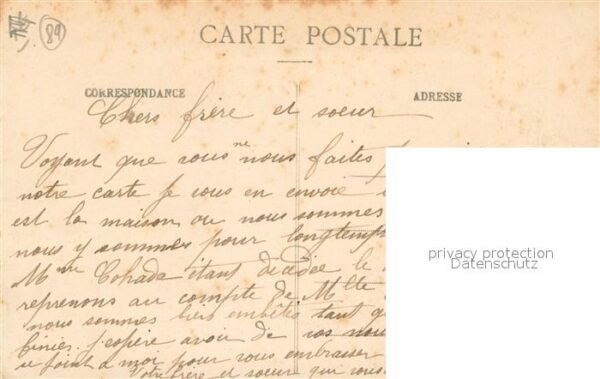 89
CARTE POSTALE
CORRESPONDANCE
ADRESSE
Chers frère et soeur
Voyant que vous ne nous faites
notre carte je vous en envoie
est la maison ou nous sommes
nous y sommes pour longtemps
Mme Cohade étant décédée le
reprenons au compte de Mlle
nous sommes bien embêtés tant
finies. j'espère avoir de vos
se joint a moi pour vous embrasser
Votre frère et soeur qui vous
privacy protection
Datenschutz